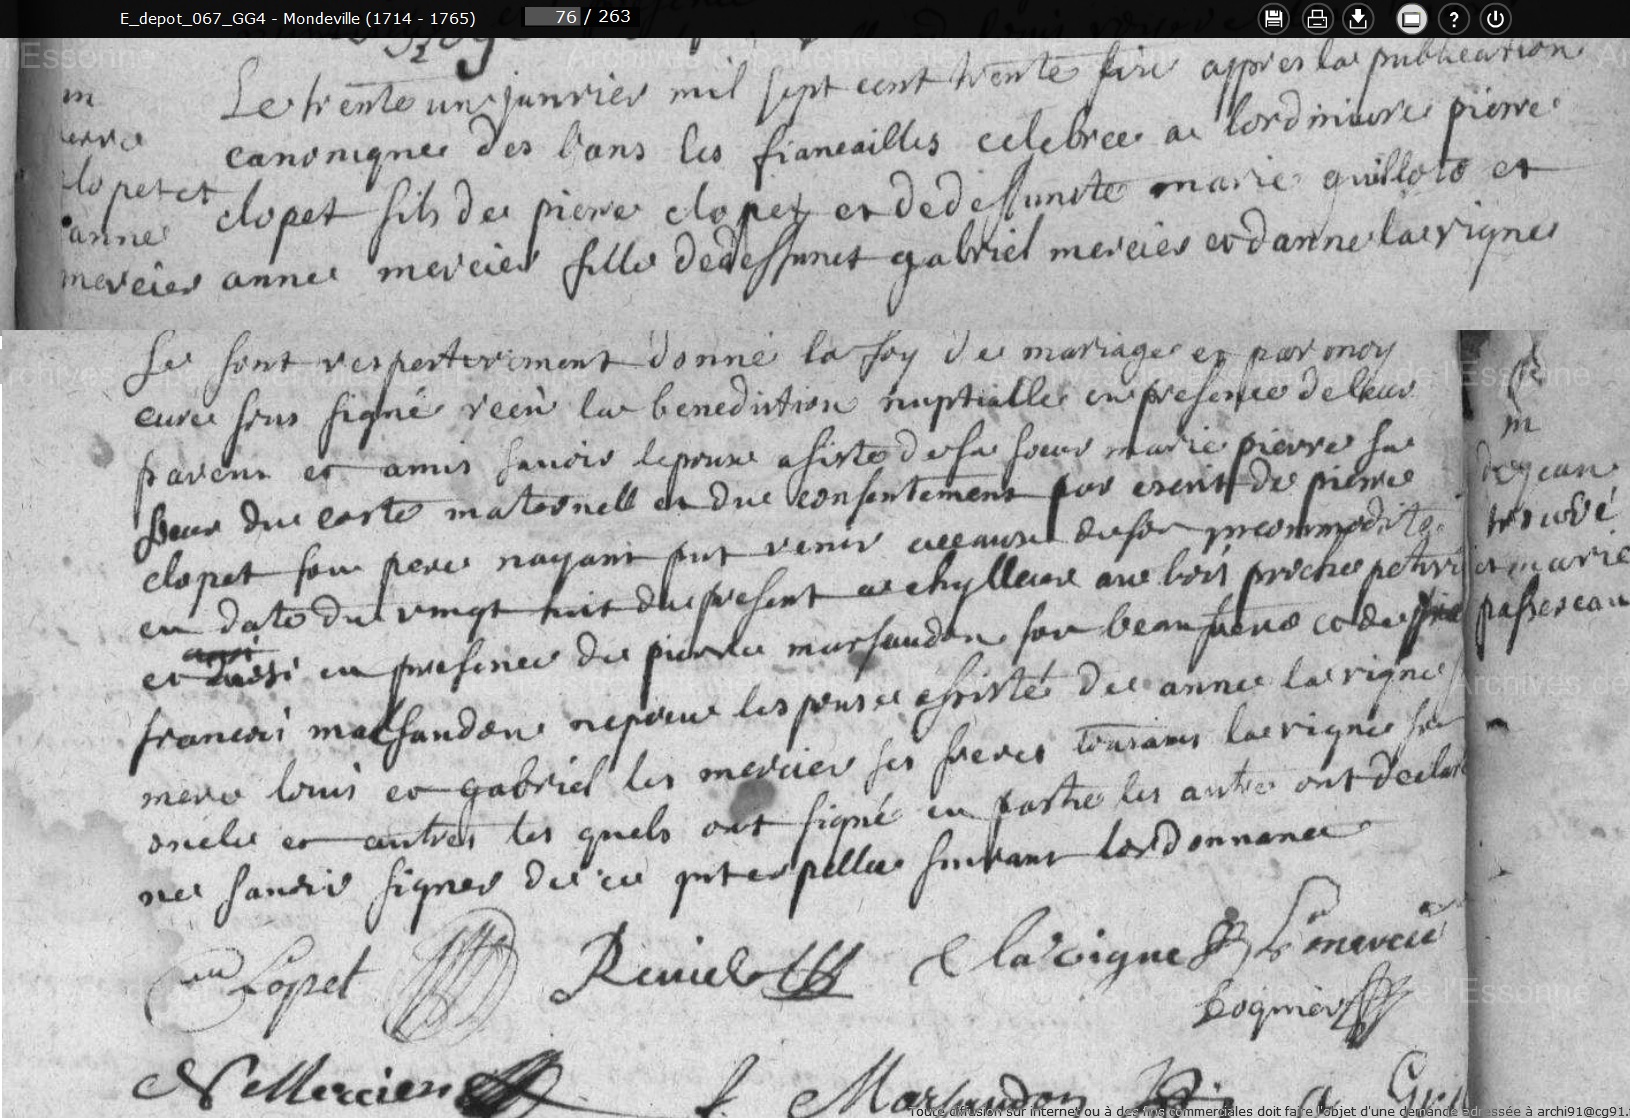 E_depot_067_GG4 - Mondeville (1714 - 1765)
76 / 263
m
clopet et
anne
mercier
Le trente un janvier mil sept cent trente six appres la publication
canonique des bans les fiancailles celebree a lordinaire pierre
clopet fils de pierre clopet et de deffuncte marie guilloto et
anne mercier fille de deffunct gabriel mercier et danne lavigne
se sont respectivement donné la foy de mariage et par moy
curé sous signé receu la benediction nuptialle en presence de leur
parens et amis savoir lepoux asisté de sa soeur marie pierre sa
soeur du costé maternell et du consentement par escrit de pierre
clopet son pere nayant put venir acause de son incommodité
en date du vingt huit du present a
au bois proche petivi
et aussi en presence de pierre marsaudon son beaufrere et de
francois marsaudon nepveu lespouse assisté de anne lavigne sa
mere louis et gabriel les mercier ses freres tousains lavigne son
oncle et autres les quels ont signé en partie les autre ont declaré
ne savoir signer de ce interpellee suivant lordonnance
de jean
trouvé
et marie
passereau
Lopet
C lavigne
L mercie
N Mercier
f Marsaudon
Toute diffusion sur internet ou à des fins commerciales doit faire l'objet d'une demande adressée à archi91@cg91.